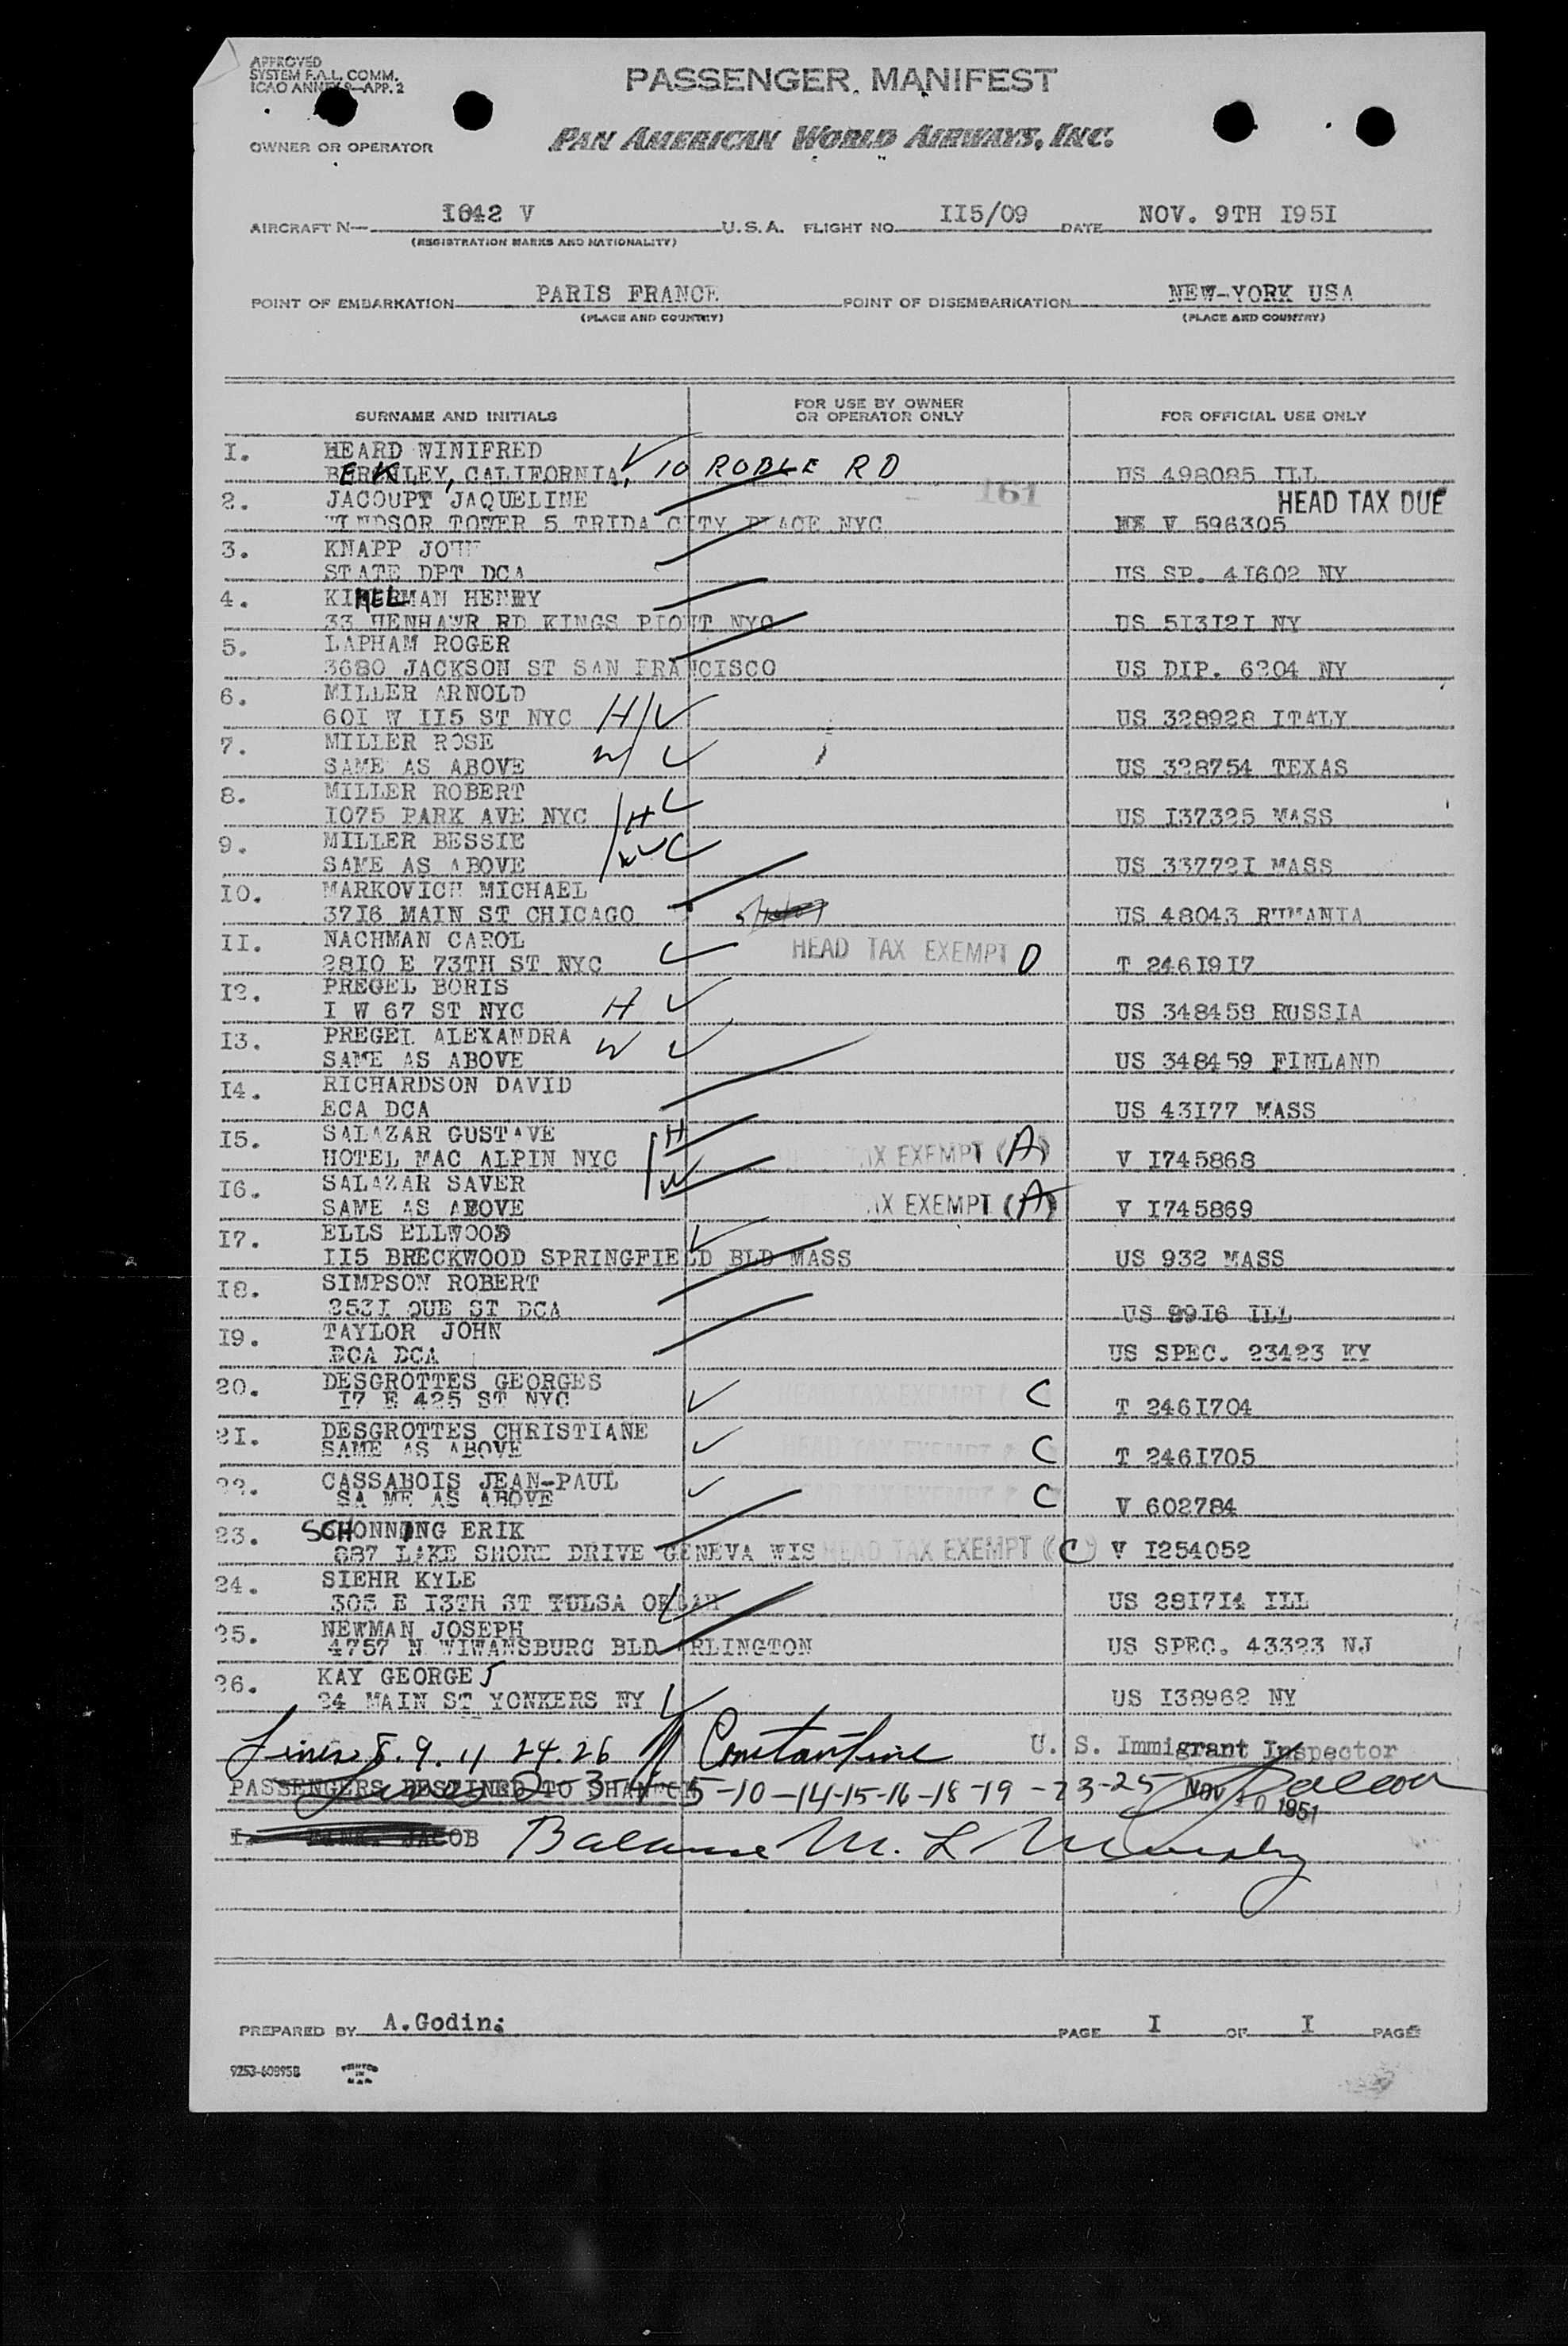 APPROVED
SYSTEM F.A.L. COMM.
ICAO ANNEX 9—APP. 2
PASSENGER MANIFEST
OWNER OR OPERATOR
PAN AMERICAN WORLD AIRWAYS, INC.
AIRCRAFT N— I642 V U.S.A. FLIGHT NO. II5/09 DATE NOV. 9TH I95I
(REGISTRATION MARKS AND NATIONALITY)
POINT OF EMBARKATION PARIS FRANCE POINT OF DISEMBARKATION NEW-YORK USA
(PLACE AND COUNTRY) (PLACE AND COUNTRY)
SURNAME AND INITIALS FOR USE BY OWNER OR OPERATOR ONLY FOR OFFICIAL USE ONLY
I. HEARD WINIFRED
BERKLEY, CALIFORNIA, 10 ROBLE RD US 498085 ILL
2. JACOUPY JAQUELINE 161 HEAD TAX DUE
WINDSOR TOWER 5 TRIDA CITY PLACE NYC V 596305
3. KNAPP JOHN
STATE DPT DCA US SP. 4I602 NY
4. KIMELMAN HENRY
33 HENHAWR RD KINGS PIONT NYC US 5I3I2I NY
5. LAPHAM ROGER
3680 JACKSON ST SAN FRANCISCO US DIP. 6204 NY
6. MILLER ARNOLD
60I W II5 ST NYC H US 328928 ITALY
7. MILLER ROSE
SAME AS ABOVE W US 328754 TEXAS
8. MILLER ROBERT
I075 PARK AVE NYC H US I37325 MASS
9. MILLER BESSIE
SAME AS ABOVE W US 33772I MASS
I0. MARKOVICH MICHAEL
37I6 MAIN ST CHICAGO US 48043 RUMANIA
II. NACHMAN CAROL HEAD TAX EXEMPT D
28I0 E 73TH ST NYC T 246I9I7
I2. PREGEL BORIS
I W 67 ST NYC H US 348458 RUSSIA
I3. PREGEL ALEXANDRA W
SAME AS ABOVE US 348459 FINLAND
I4. RICHARDSON DAVID
ECA DCA US 43I77 MASS
I5. SALAZAR GUSTAVE H
HOTEL MAC ALPIN NYC TAX EXEMPT (A) V I745868
I6. SALAZAR SAVER W
SAME AS ABOVE TAX EXEMPT (A) V I745869
I7. ELLS ELLWOOD
II5 BRECKWOOD SPRINGFIELD BLD MASS US 932 MASS
I8. SIMPSON ROBERT
253I QUE ST DCA US 99I6 ILL
I9. TAYLOR JOHN
ECA DCA US SPEC. 23423 KY
20. DESGROTTES GEORGES
I7 E 425 ST NYC HEAD TAX EXEMPT C T 246I704
2I. DESGROTTES CHRISTIANE
SAME AS ABOVE HEAD TAX EXEMPT C T 246I705
22. CASSABOIS JEAN-PAUL
SA ME AS ABOVE HEAD TAX EXEMPT C V 602784
23. SCHONNING ERIK
887 LAKE SHORE DRIVE GENEVA WIS HEAD TAX EXEMPT (C) V I254052
24. SIEHR KYLE
305 E I3TH ST TULSA US 28I7I4 ILL
25. NEWMAN JOSEPH
4757 N WIWANSBURG BLD ARLINGTON US SPEC. 43323 NJ
26. KAY GEORGE J
24 MAIN ST YONKERS NY US I38962 NY
Lines 8. 9. 11 24. 26 Constantine U. S. Immigrant Inspector
PASSENGERS DESTINED TO SHANNON
Lines 2-3-4-5-10-14-15-16-18-19-23-25 NOV 10 1951
I. JACOB Balance M. L. Murphy
PREPARED BY A.Godin; PAGE I OF I PAGES
9253-60895B PRINTED IN